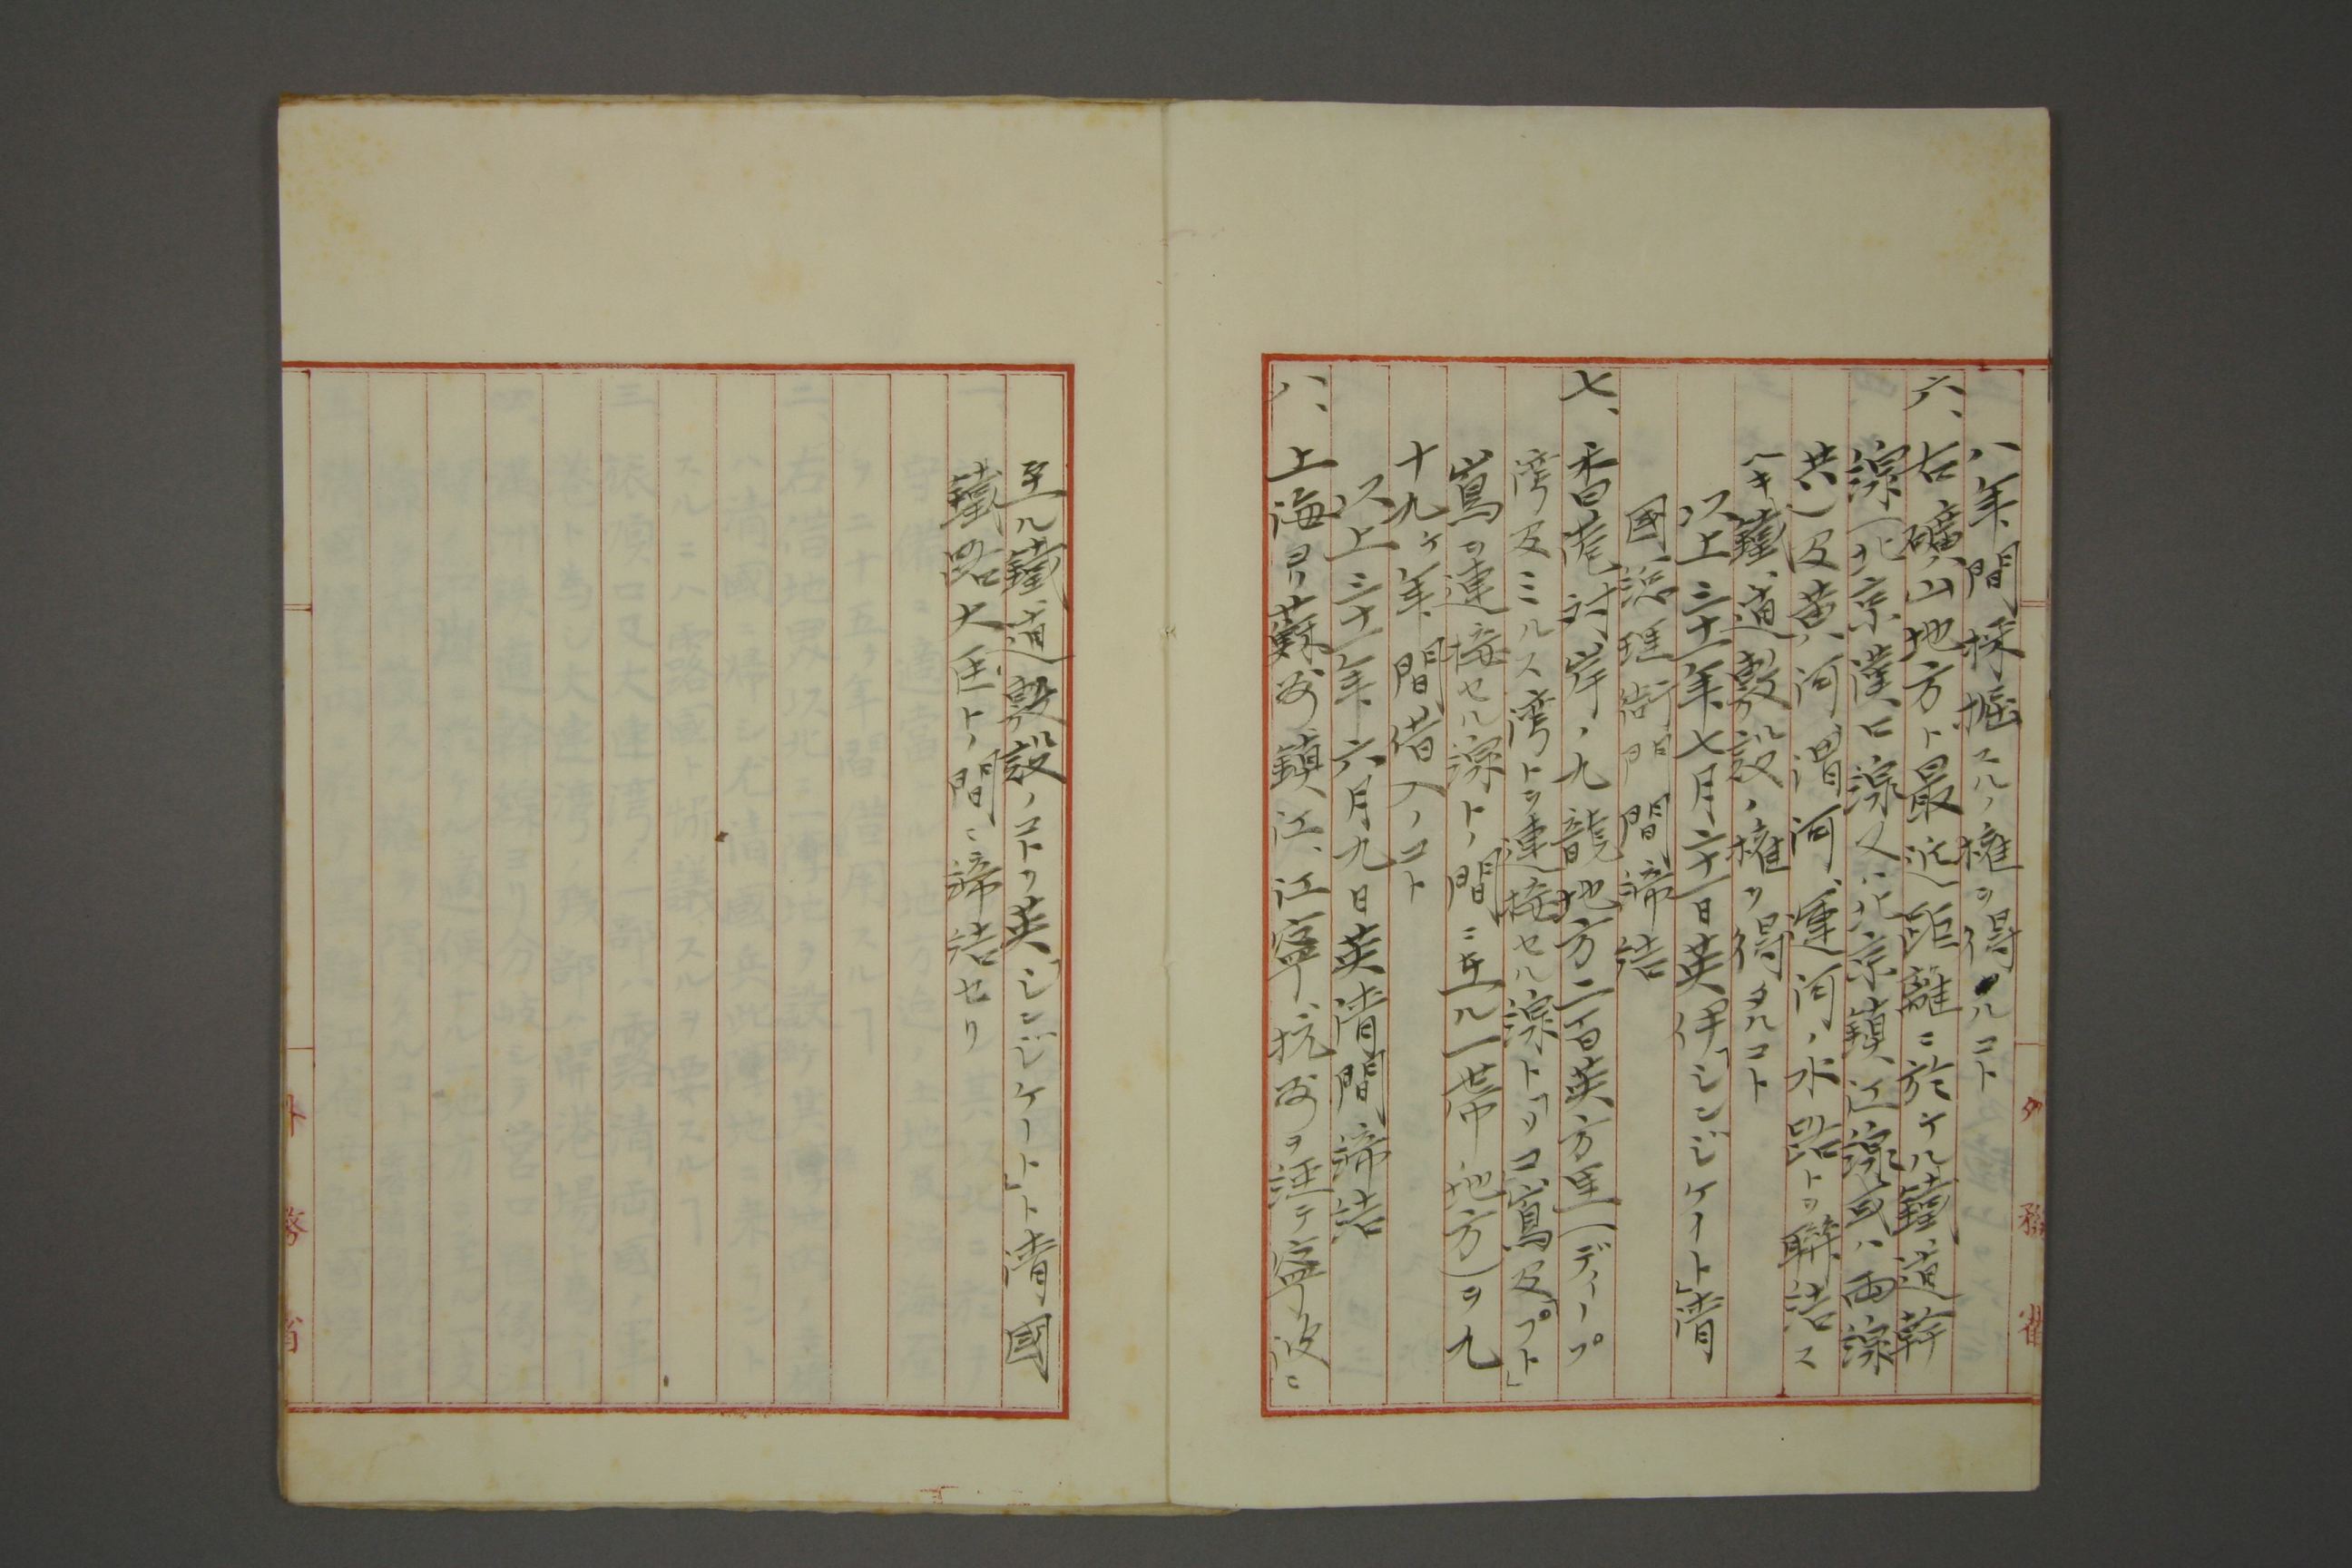 八年間採掘スルノ權ヲ得ルコト
六、右礦山地方ト最近距離ニ於ケル鐵道幹
線(北京漢口線又ハ北京鎮江線或ハ両線
共)及黄河、渭河、運河ノ水路トヲ聯結ス
ヘキ鐵道敷設ノ權ヲ得タルコト
以上三十一年七月二十一日英伊「シンジケイト」清
國總理衙門間締結
七、香港対岸ノ九龍地方二百英方里(ディープ
湾及ミルス湾トヲ連接セル線ト「リコ」嶌及「プフト」
嶌ヲ連接セル線トノ間ニ至ル一帯地方)ヲ九
十九ヶ年間借入ノコト
以上三十一年六月九日英清間締結
八、上海ヨリ蘇州、鎮江、江寧、抗州ヲ経テ寧波ニ
外務省
至ル鐵道敷設ノコトヲ英「シンジケート」ト清國
鐵路大臣トノ間ニ締結セリ
外務省